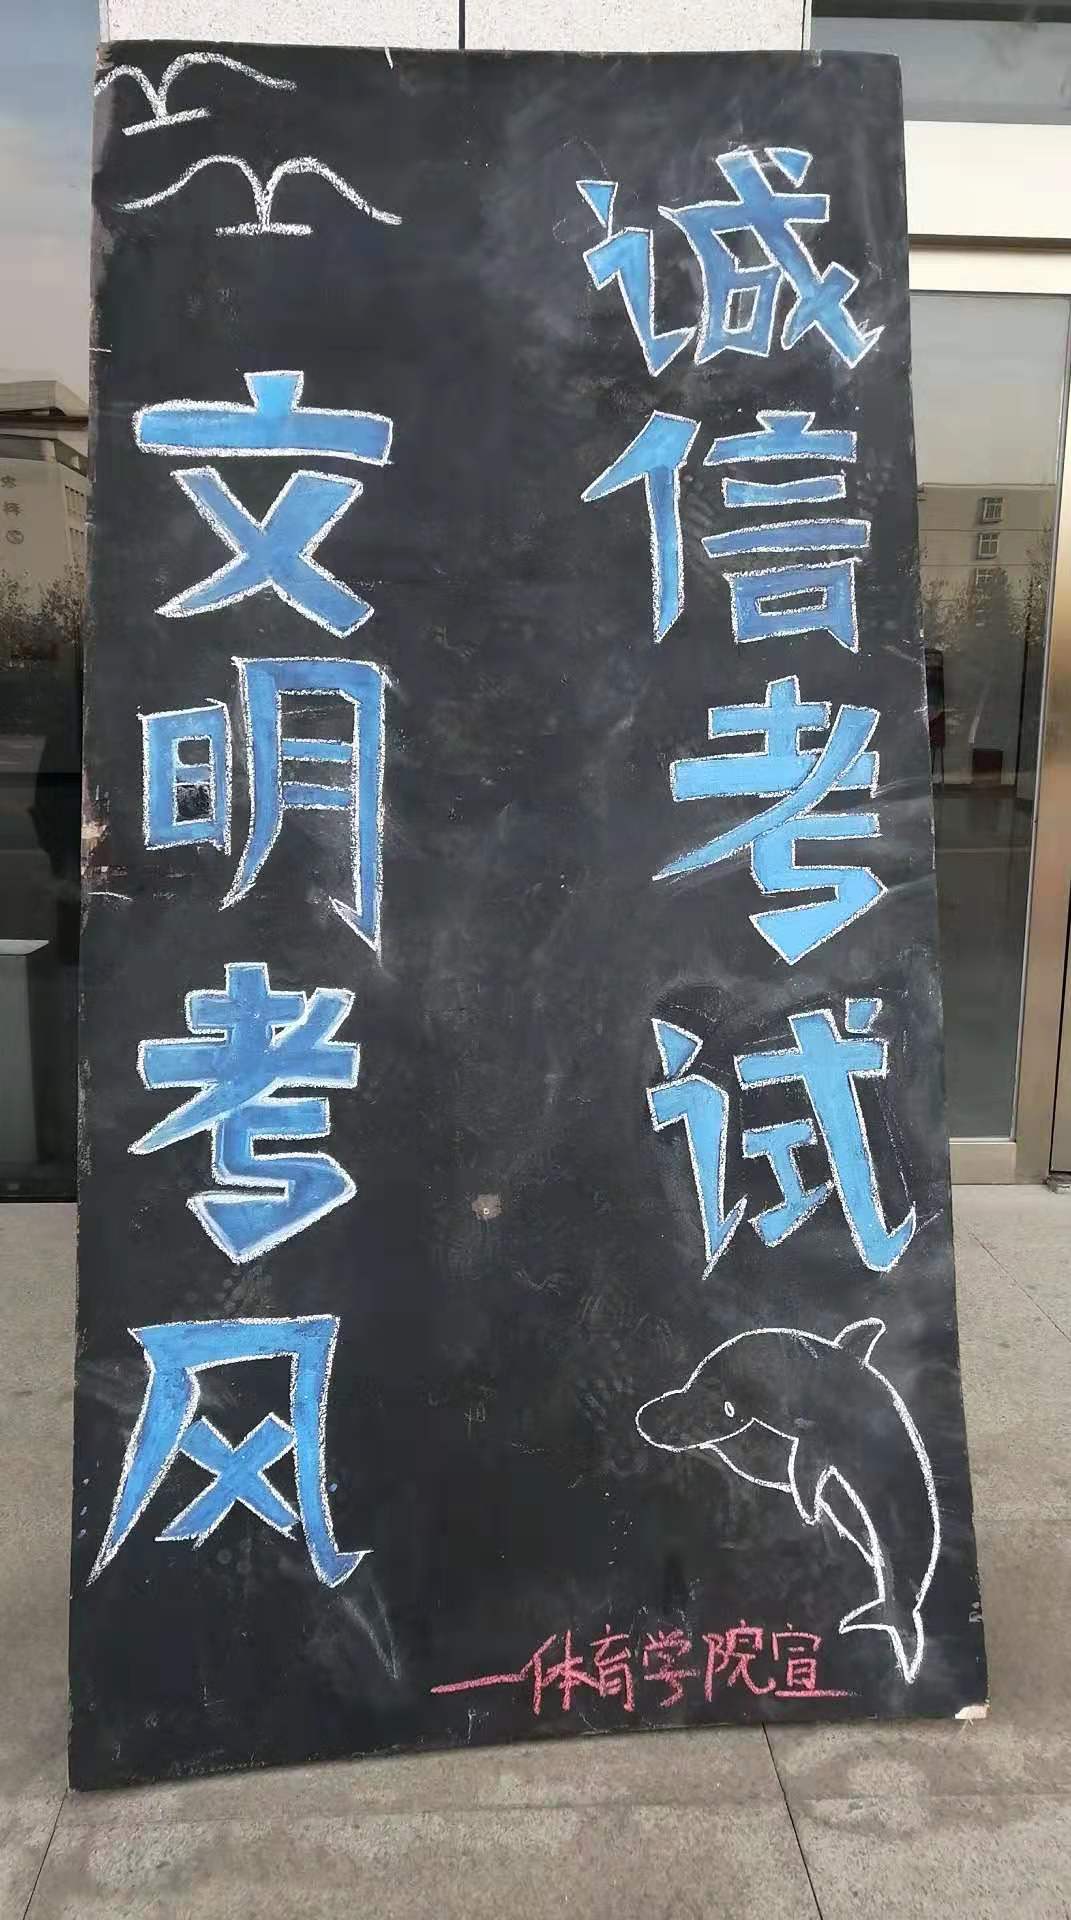 诚信考试
文明考风
—体育学院宣